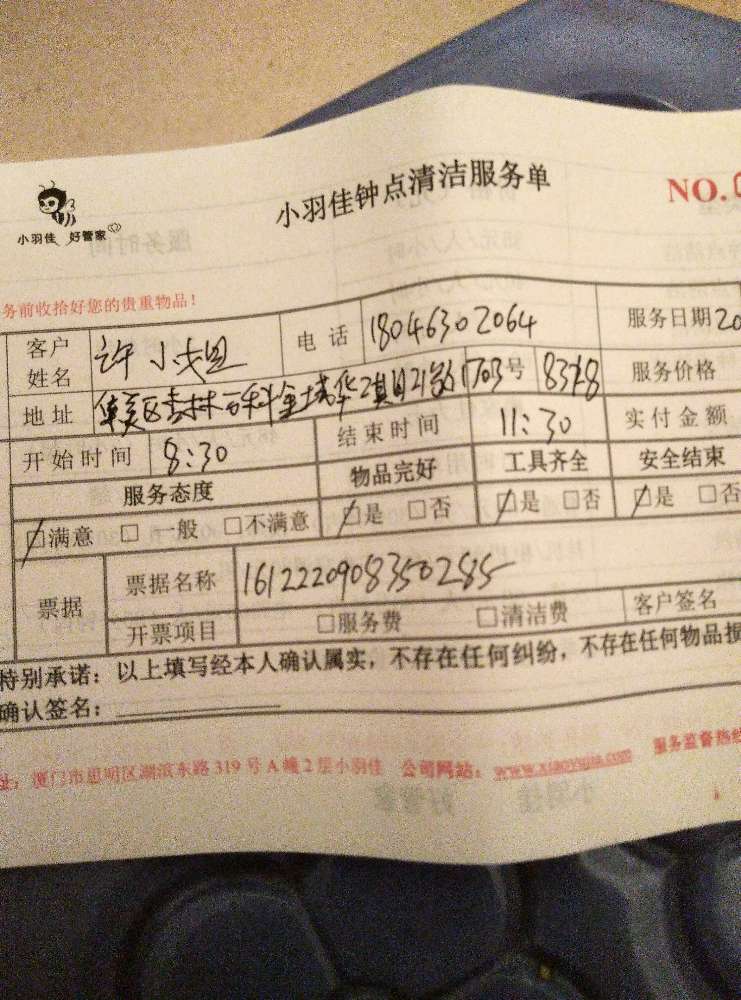 小羽佳 好管家
小羽佳钟点清洁服务单
NO.
务前收拾好您的贵重物品!
客户姓名 许小姐 电话 18046302064 服务日期 20
地址 集美区杏林万科金域华 21 1703号 8378 服务价格
开始时间 8:30 结束时间 11:30 实付金额
服务态度 物品完好 工具齐全 安全结束
☑满意 □一般 □不满意 ☑是 □否 ☑是 □否 ☑是 □否
票据 票据名称 1612220908350285
开票项目 □服务费 □清洁费 客户签名
特别承诺:以上填写经本人确认属实,不存在任何纠纷,不存在任何物品损
确认签名:
址:厦门市思明区湖滨东路319号A幢2层小羽佳 公司网站:www.xiaoyujia.com 服务监督热线